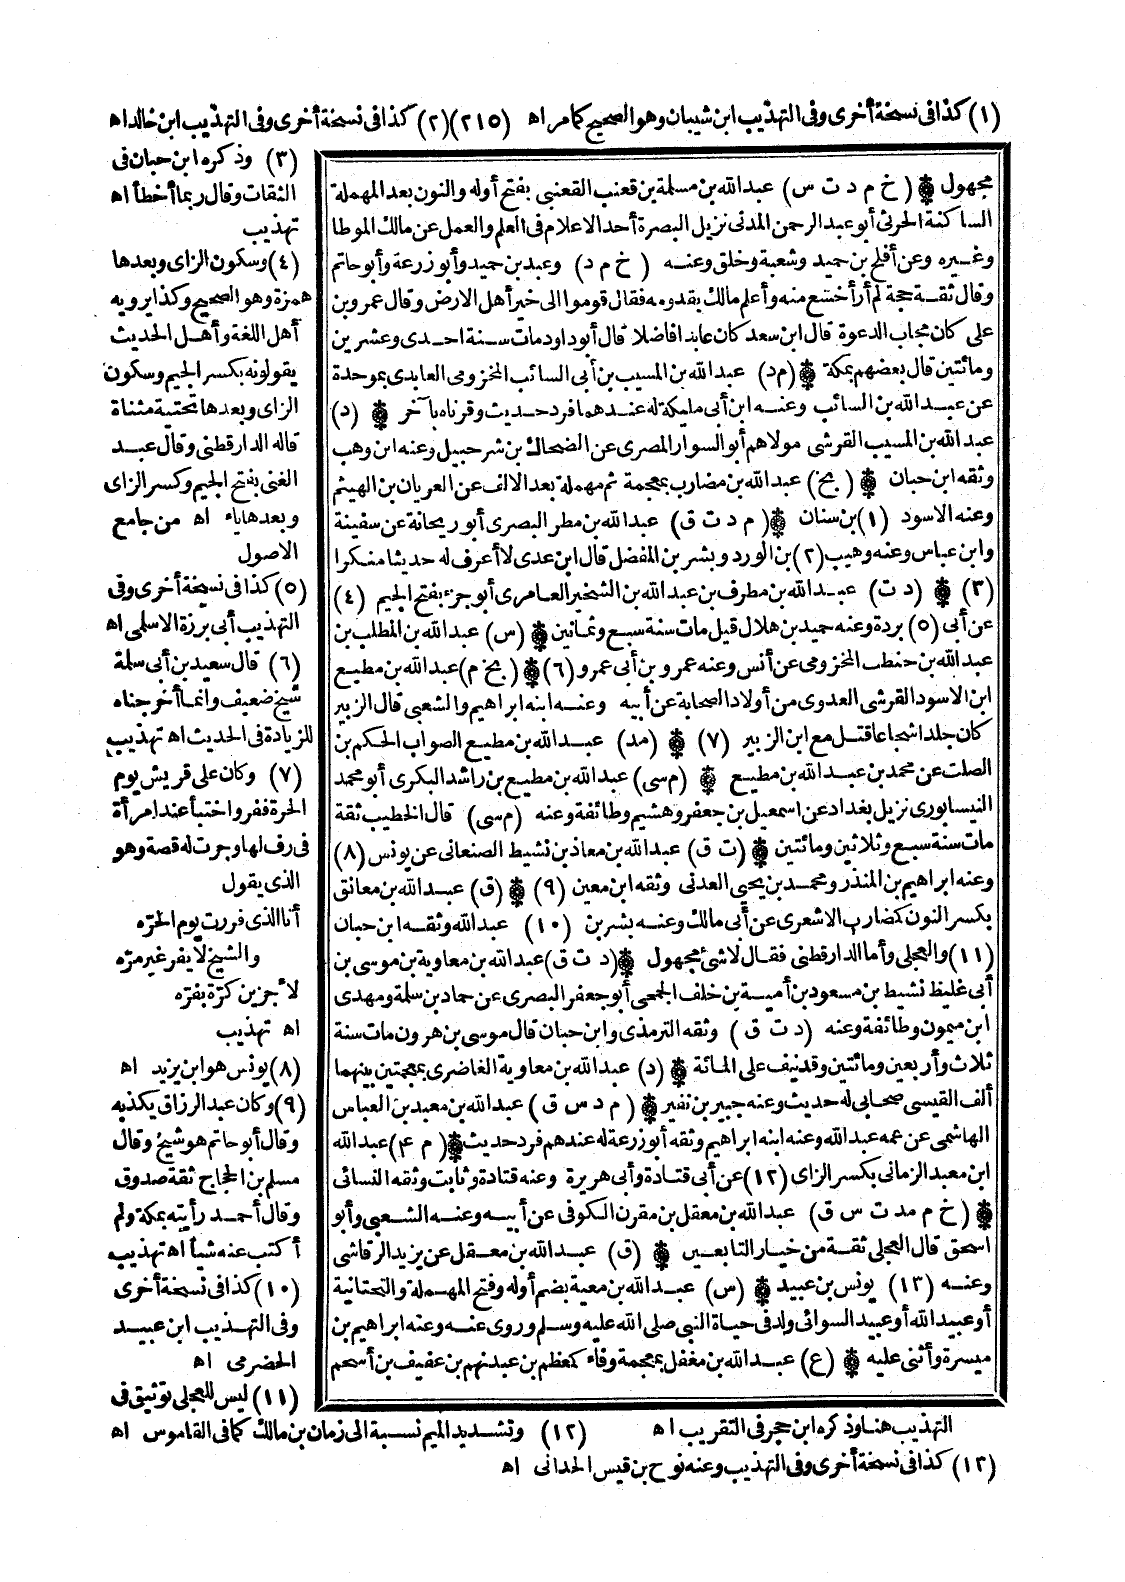 (١) كذا فى نسخة أخرى وفى التهذيب ابن شيبان وهو الصحيح كما مر اه (٢١٥) (٢) كذا فى نسخة أخرى وفى التهذيب ابن خالد اه
مجهول ۞ (خ م د ت س) عبد الله بن مسلمة بن قعنب القعنبى بفتح أوله والنون بعد المهملة
الساكنة الحرثى أبو عبد الرحمن المدنى نزيل البصرة أحد الاعلام فى العلم والعمل عن مالك الموطا
وغيره وعن أفلح بن حميد وشعبة وخلق وعنه (خ م د) وعبد بن حميد وأبو زرعة وأبو حاتم
وقال ثقة حجة لم أر أخشع منه وأعلم مالك بقدومه فقال قوموا الى خير أهل الارض وقال عمرو بن
على كان مجاب الدعوة قال ابن سعد كان عابدا فاضلا قال أبو داود مات سنة احدى وعشرين
ومائتين قال بعضهم بمكة ۞ (م د) عبد الله بن المسيب بن أبى السائب المخزومى العابدى بموحدة
عن عبد الله بن السائب وعنه ابن أبى مليكة له عندهما فرد حديث وقرناه بآخر ۞ (د)
عبد الله بن المسيب القرشى مولاهم أبو السوار المصرى عن الضحاك بن شرحبيل وعنه ابن وهب
وثقه ابن حبان ۞ (بخ) عبد الله بن مضارب بمعجمة ثم مهملة بعد الالف عن العريان بن الهيثم
وعنه الاسود (١) بن سنان ۞ (م د ت ق) عبد الله بن مطر البصرى أبو ريحانة عن سفينة
وابن عباس وعنه وهيب (٢) بن الورد وبشر بن المفضل قال ابن عدى لا أعرف له حديثا منكرا
(٣) ۞ (د ت) عبد الله بن مطرف بن عبد الله بن الشخير العامرى أبو جزء بفتح الجيم (٤)
عن أبى (٥) بردة وعنه حميد بن هلال قيل مات سنة سبع وثمانين ۞ (س) عبد الله بن المطلب بن
عبد الله بن حنطب المخزومى عن أنس وعنه عمرو بن أبى عمرو (٦) ۞ (بخ م) عبد الله بن مطيع
ابن الاسود القرشى العدوى من أولاد الصحابة عن أبيه وعنه ابنه ابراهيم والشعبى قال الزبير
كان جلدا شجاعا قتل مع ابن الزبير (٧) ۞ (مد) عبد الله بن مطيع الصواب الحكم بن
الصلت عن محمد بن عبد الله بن مطيع ۞ (م سى) عبد الله بن مطيع بن راشد البكرى أبو محمد
النيسابورى نزيل بغداد عن اسمعيل بن جعفر وهشيم وطائفة وعنه (م سى) قال الخطيب ثقة
مات سنة سبع وثلاثين ومائتين ۞ (ت ق) عبد الله بن معاذ بن نشيط الصنعانى عن يونس (٨)
وعنه ابراهيم بن المنذر ومحمد بن يحيى العدنى وثقه ابن معين (٩) ۞ (ق) عبد الله بن معانق
بكسر النون كمضارب الاشعرى عن أبى مالك وعنه بشر بن (١٠) عبد الله وثقه ابن حبان
(١١) والعجلى وأما الدارقطنى فقال لا شئ مجهول ۞ (د ت ق) عبد الله بن معاوية بن موسى بن
أبى غليظ نشيط بن مسعود بن أمية بن خلف الجمحى أبو جعفر البصرى عن حماد بن سلمة ومهدى
ابن ميمون وطائفة وعنه (د ت ق) وثقه الترمذى وابن حبان قال موسى بن هرون مات سنة
ثلاث وأربعين ومائتين وقد نيف على المائة ۞ (د) عبد الله بن معاوية الغاضرى بمعجمتين بينهما
ألف القيسى صحابى له حديث وعنه جبير بن نفير ۞ (م د س ق) عبد الله بن معبد بن العباس
الهاشمى عن عمه عبد الله وعنه ابنه ابراهيم وثقه أبو زرعة له عندهم فرد حديث ۞ (م ٤) عبد الله
ابن معبد الزمانى بكسر الزاى (١٢) عن أبى قتادة وأبى هريرة وعنه قتادة وثابت وثقه النسائى
۞ (خ م مد ت س ق) عبد الله بن معقل بن مقرن الكوفى عن أبيه وعنه الشعبى وأبو
اسحق قال العجلى ثقة من خيار التابعين ۞ (ق) عبد الله بن معقل عن يزيد الرقاشى
وعنه (١٣) يونس بن عبيد ۞ (س) عبد الله بن معية بضم أوله وفتح المهملة والتحتانية
أو عبيد الله أو عبيد السوائى ولد فى حياة النبى صلى الله عليه وسلم وروى عنه وعنه ابراهيم بن
ميسرة وأثنى عليه ۞ (ع) عبد الله بن مغفل بمعجمة وفاء كمعظم بن عبد نهم بن عفيف بن أسحم
(٣) وذكره ابن حبان فى
الثقات وقال ربما أخطأ اه
تهذيب
(٤) وسكون الزاى وبعدها
همزة وهو الصحيح وكذا يرويه
أهل اللغة وأهل الحديث
يقولونه بكسر الجيم وسكون
الزاى وبعدها تحتية مثناة
قاله الدارقطنى وقال عبد
الغنى بفتح الجيم وكسر الزاى
وبعدها ياء اه من جامع
الاصول
(٥) كذا فى نسخة أخرى وفى
التهذيب أبى برزة الاسلمى اه
(٦) قال سعيد بن أبى سلمة
شيخ ضعيف وانما أخرجناه
للزيادة فى الحديث اه تهذيب
(٧) وكان على قريش يوم
الحرة ففر واختبأ عند امرأة
فى رف لها وجرت له قصة وهو
الذى يقول
أنا الذى فررت يوم الحره
والشيخ لا يفر غير مره
لأجزين كرّة بفرّه
اه تهذيب
(٨) يونس هو ابن يزيد اه
(٩) وكان عبد الرزاق يكذبه
وقال أبو حاتم هو شيخ وقال
مسلم بن الحجاج ثقة صدوق
وقال أحمد رأيته بمكة ولم
أكتب عنه شيأ اه تهذيب
(١٠) كذا فى نسخة أخرى
وفى التهذيب ابن عبيد
الحضرمى اه
(١١) ليس للعجلى توثيق فى
التهذيب هنا وذكره ابن حجر فى التقريب اه (١٢) وتشديد الميم نسبة الى زمان بن مالك كما فى القاموس اه
(١٣) كذا فى نسخة أخرى وفى التهذيب وعنه نوح بن قيس الحدانى اه